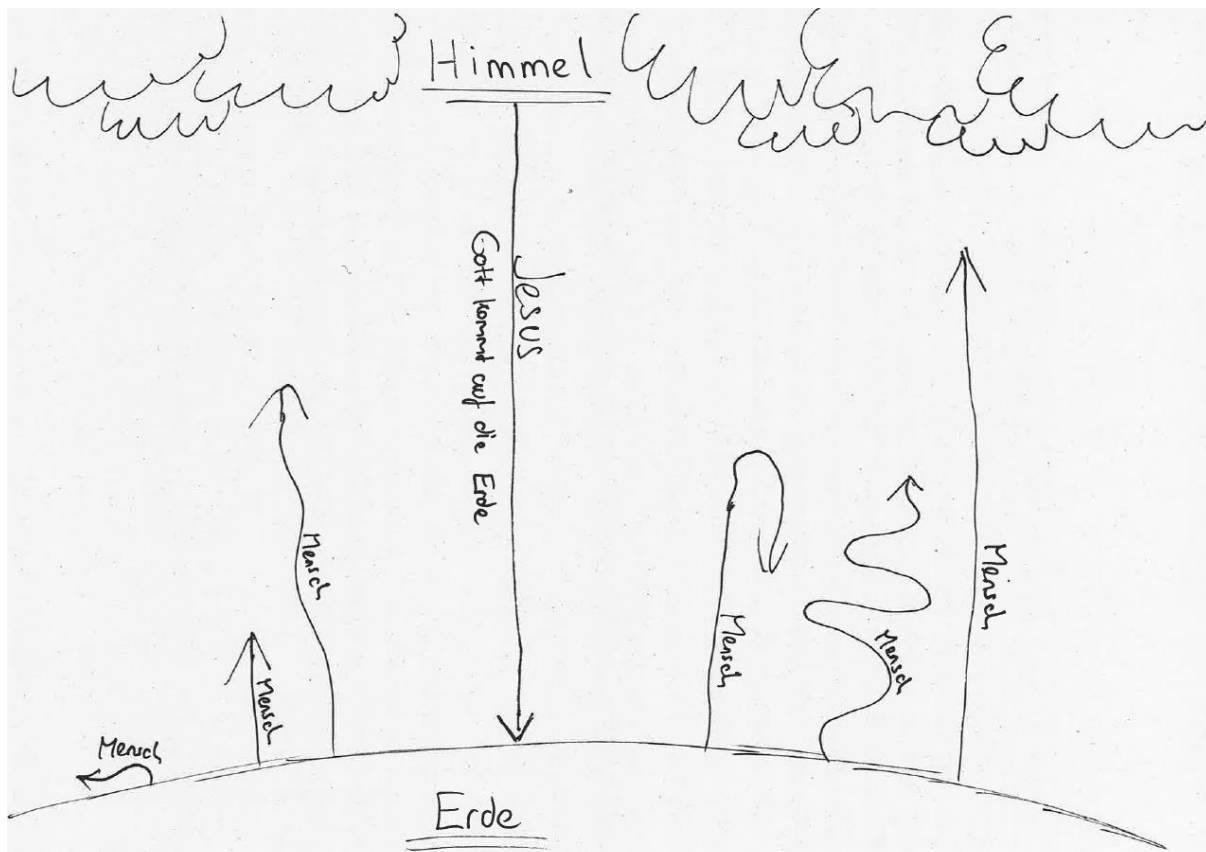 Himmel
Jesus
Gott kommt auf die Erde
Mensch
Mensch
Mensch
Mensch
Mensch
Mensch
Erde